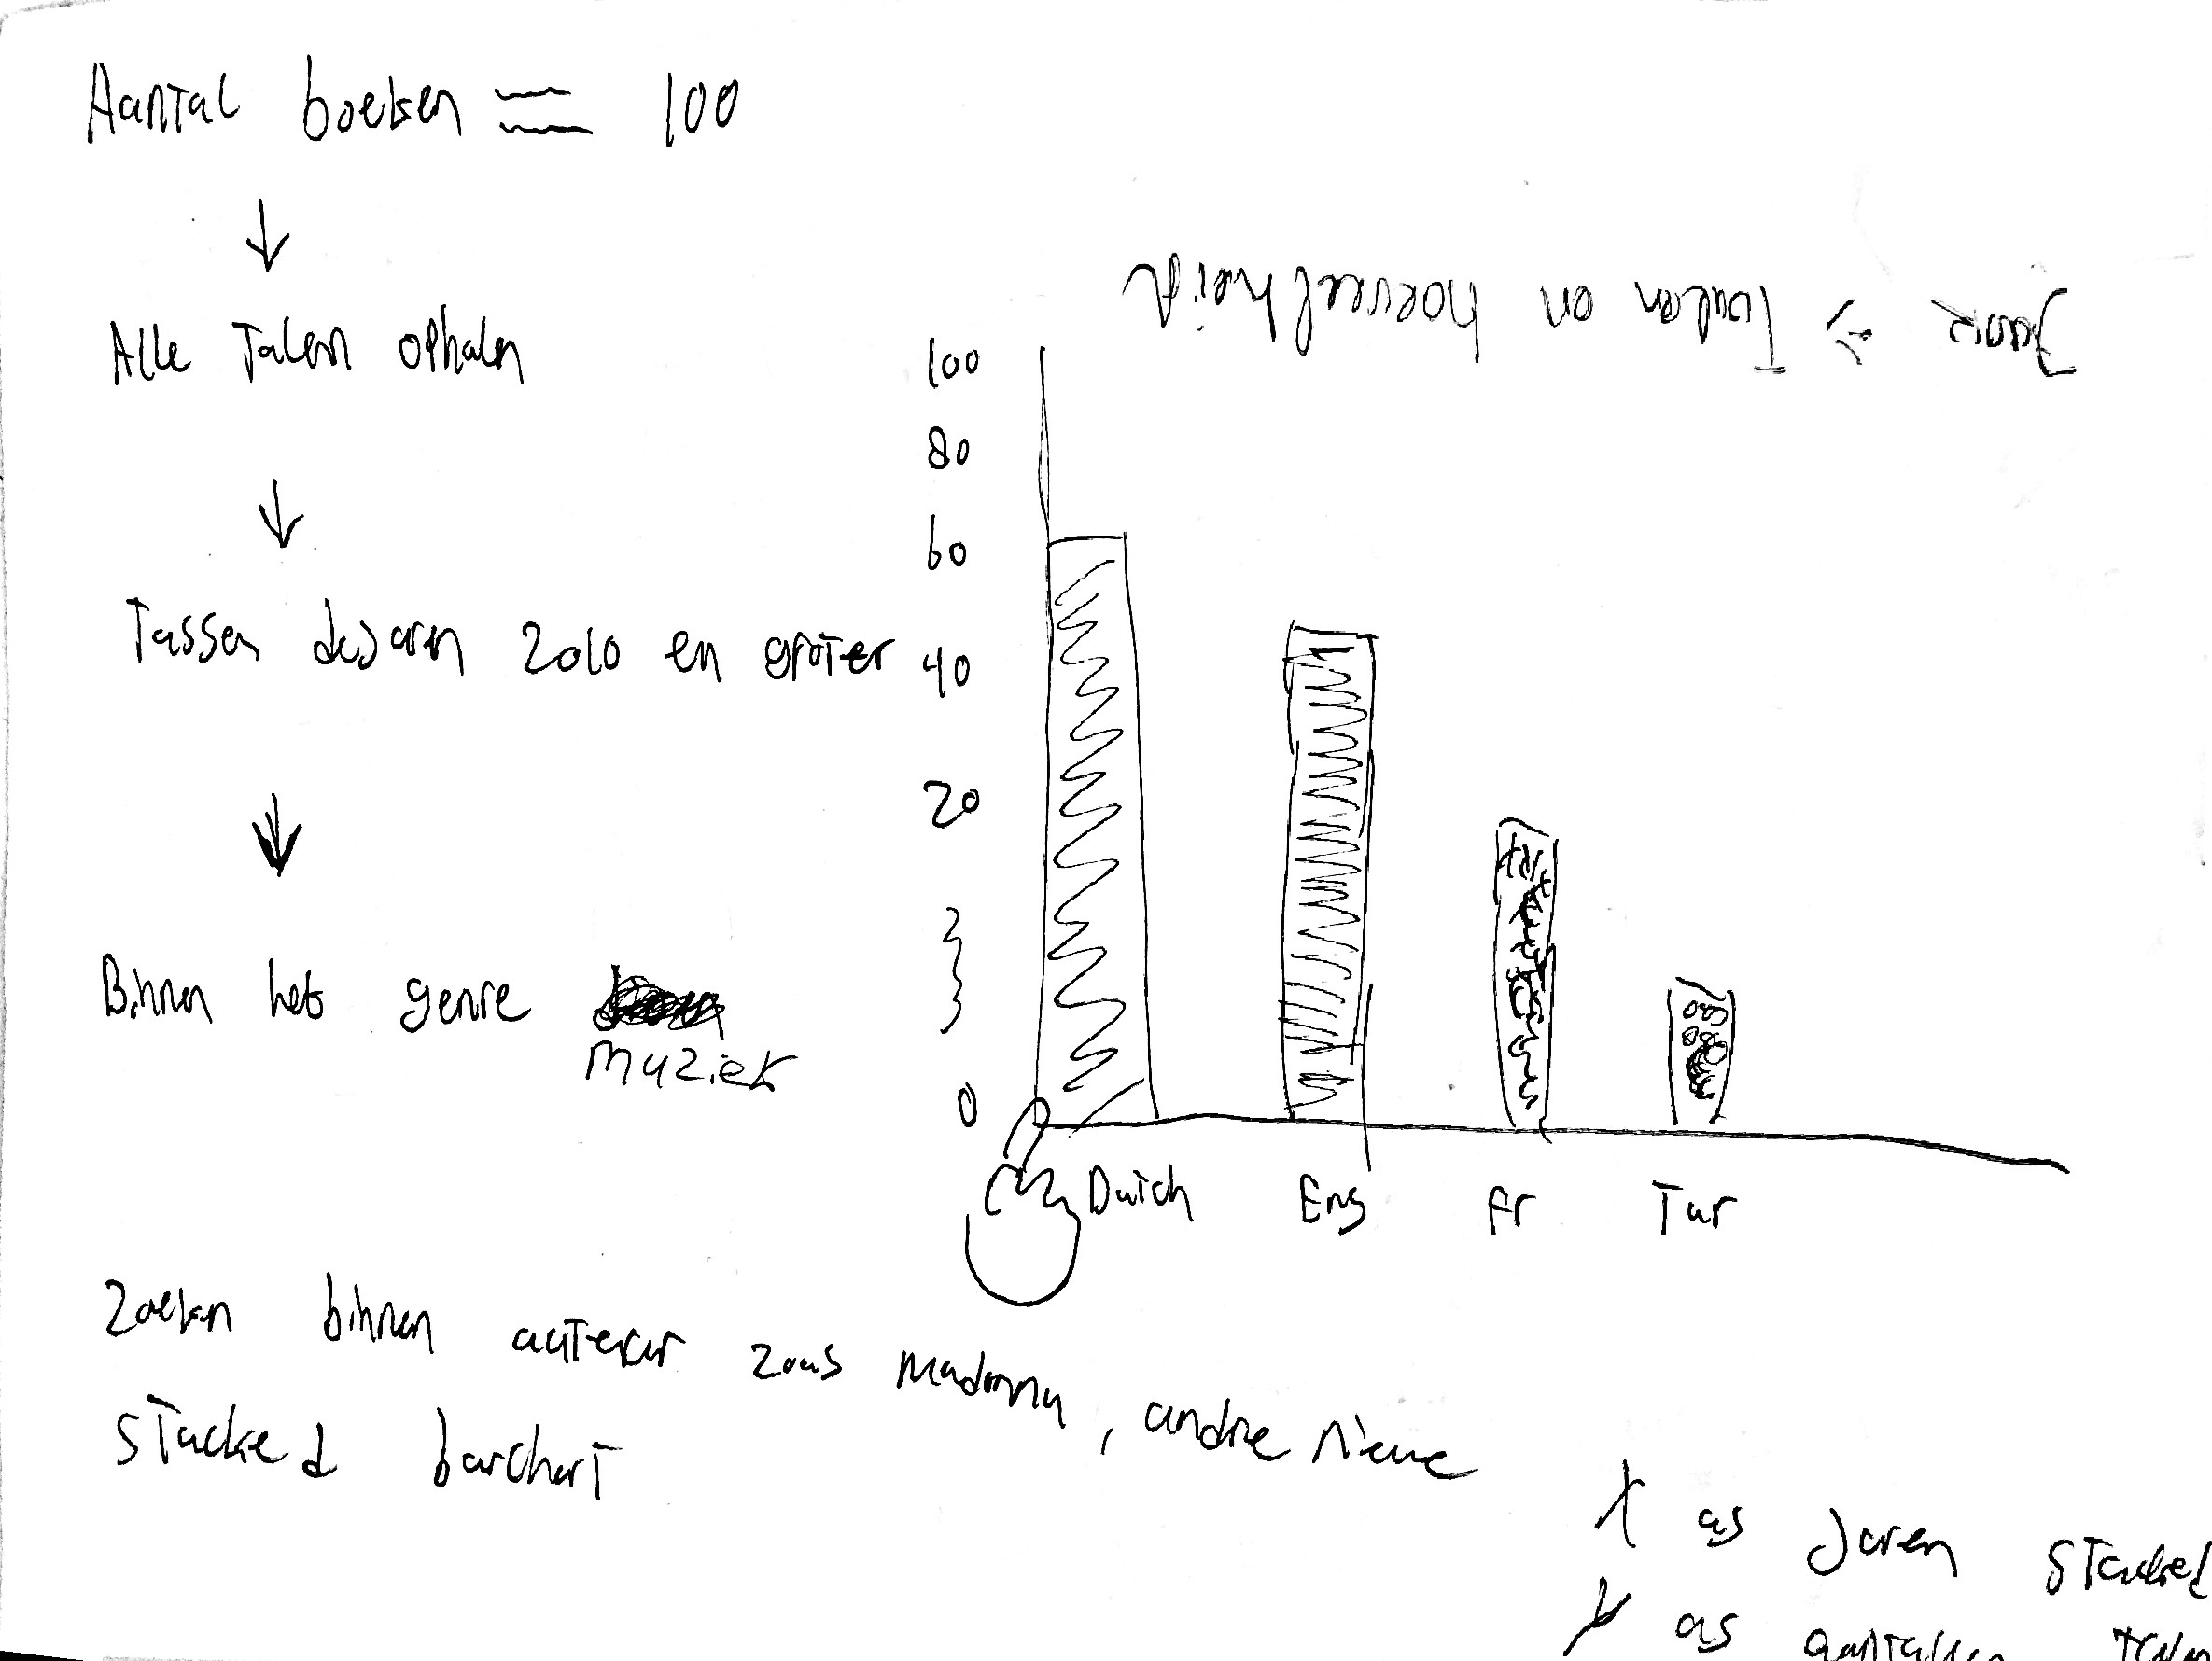 Aantal boeken = 100
Alle Talen ophalen
Tussen de Jaren 2010 en groter
Binnen het genre
muziek
Jaar → Landen en hoeveelheid
100
80
60
40
20
0
Dutch Eng Fr Tur
Zoeken binnen auteur zoas Madonna, andre rieue
stacked barchart
X as Jaren stacked
Y as aantallen